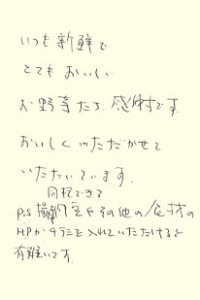 いつも新鮮で
とてもおいしい
お野菜たち、感謝です。
おいしくいただかせて
いただいています。
同梱できる
P.S. やその他の食材の
HPかチラシを入れていただけると
有難いです。